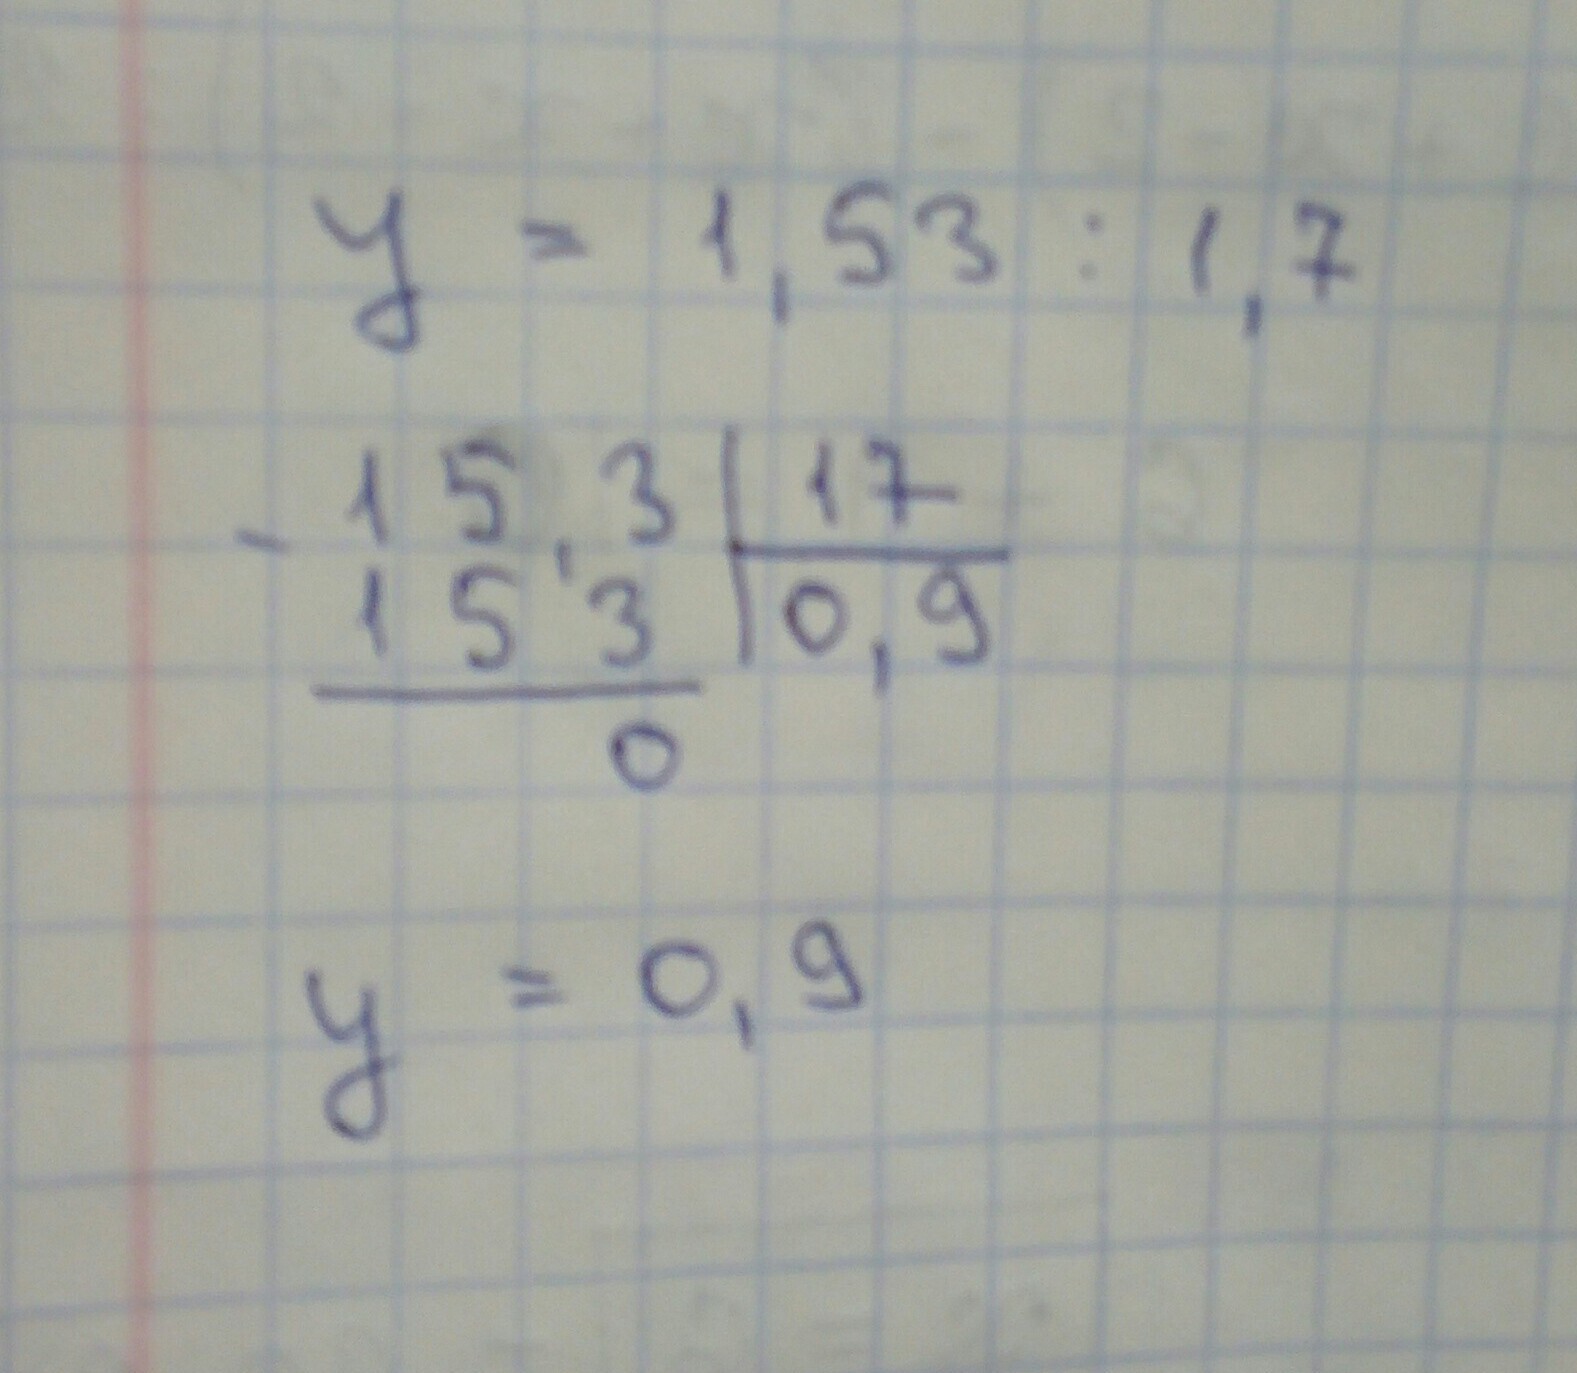 y = 1,53 : 1,7
- 15,3 | 17
153 | 0,9
0
y = 0,9